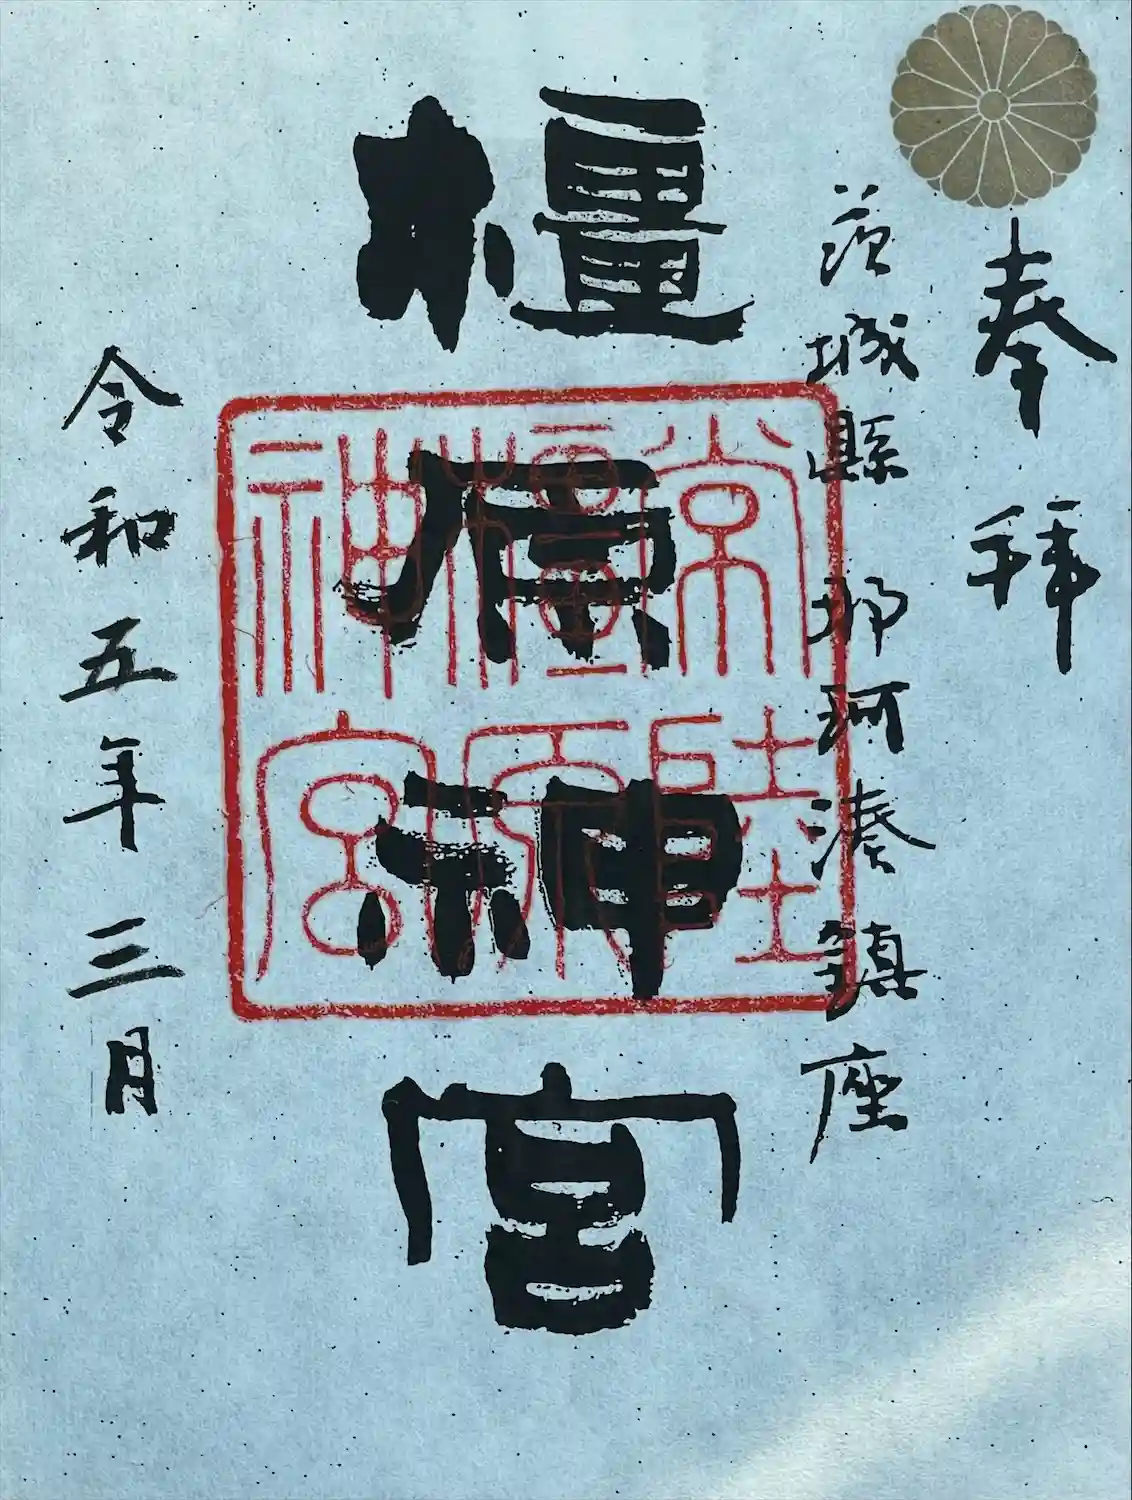 奉拝
茨城縣 那珂湊鎮座
橿原神宮
常陸
橿原
神宮
令和五年三月